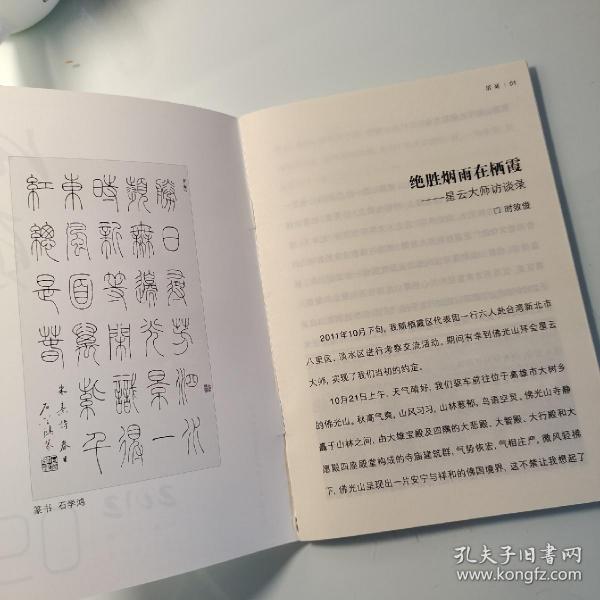 勝日尋芳泗水
濱無邊光景一
時新等閒識得
東風面萬紫千
紅總是春
朱熹詩春日
篆书 石学鸿
01
绝胜烟雨在栖霞
——星云大师访谈录
2011年10月下旬,我随栖霞区代表团一行六人赴台湾新北市
八里区、淡水区进行考察交流活动。期间有幸到佛光山拜会星云
大师,实现了我们当初的约定。
10月21日上午,天气晴好,我们驱车前往位于高雄市大树乡
的佛光山。秋高气爽,山风习习,山林葱郁,鸟语空灵。佛光山寺静
矗于山林之间,由大雄宝殿及四隅的大悲殿、大智殿、大行殿和大
愿殿四座殿堂构成的寺庙建筑群,气势恢宏,气相庄严。微风轻拂
下,佛光山呈现出一片安宁与祥和的佛国境界,这不禁让我想起了
孔夫子旧书网
www.kongfz.com